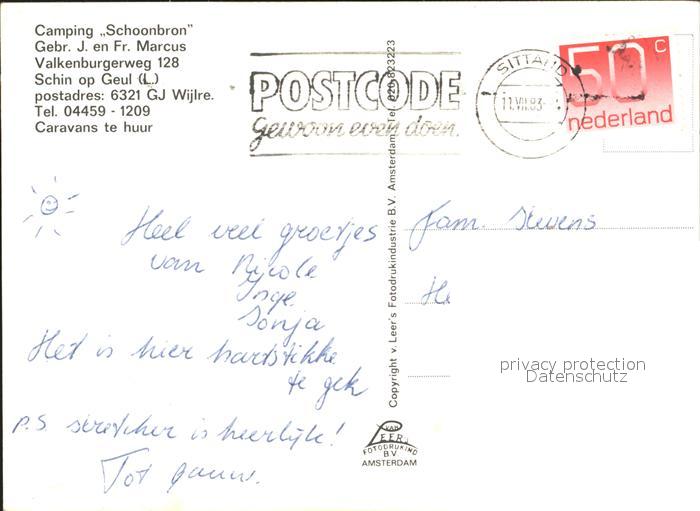 Camping „Schoonbron”
Gebr. J. en Fr. Marcus
Valkenburgerweg 128
Schin op Geul (L.)
postadres: 6321 GJ Wijlre.
Tel. 04459 - 1209
Caravans te huur
POSTCODE
gewoon even doen.
SITTARD
11.VII.83
50 c
nederland
Heel veel groetjes
van Nicole
Inge
Sonja
Het is hier hartstikke
te gek
P.S stretcher is heerlijk!
Tot gauw.
Copyright v. Leer's Fotodrukindustrie B.V. Amsterdam Tel. 020-823223
Fam. Stevens
He
privacy protection
Datenschutz
VAN
LEER's
FOTODRUKIND
B.V
AMSTERDAM